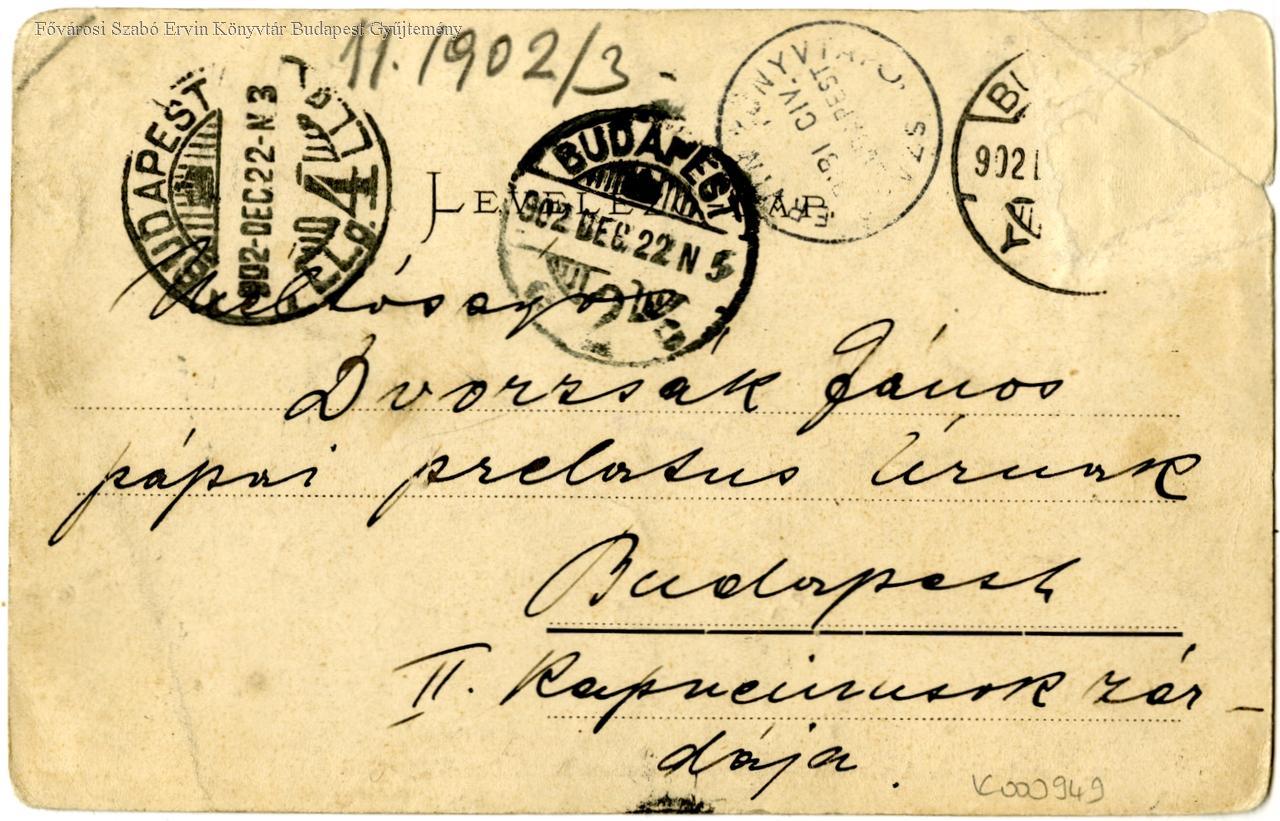 Fővárosi Szabó Ervin Könyvtár Budapest Gyűjtemény
11.1902/3.
BUDAPEST
902-DEC22-N3
4
BUDAPEST
902 DEC 22 N 5
2
902
LEVELEZ AP
Méltóságos
Dvorzsák János
pápai prelatus Úrnak
Budapest
II. Kapucinusok zár-
dája.
K000949